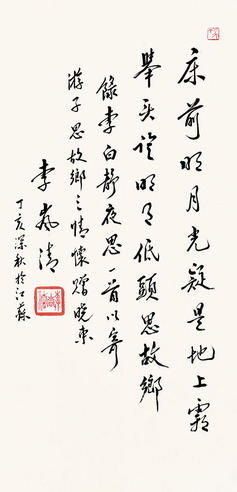 床前明月光疑是地上霜
舉头望明月低頭思故鄉
錄李白静夜思一首以寄
游子思故鄉之情懷贈晓东
李嵐清
丁亥深秋於江蘇